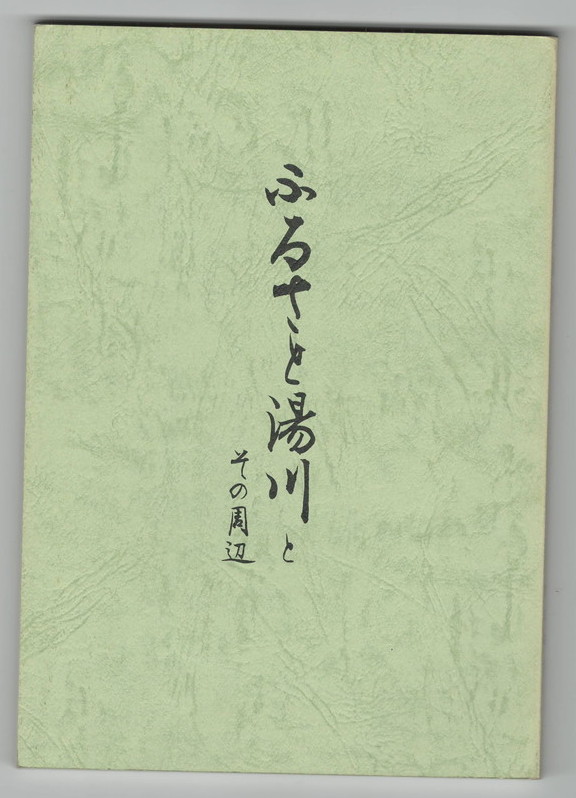 ふるさと湯川と
その周辺